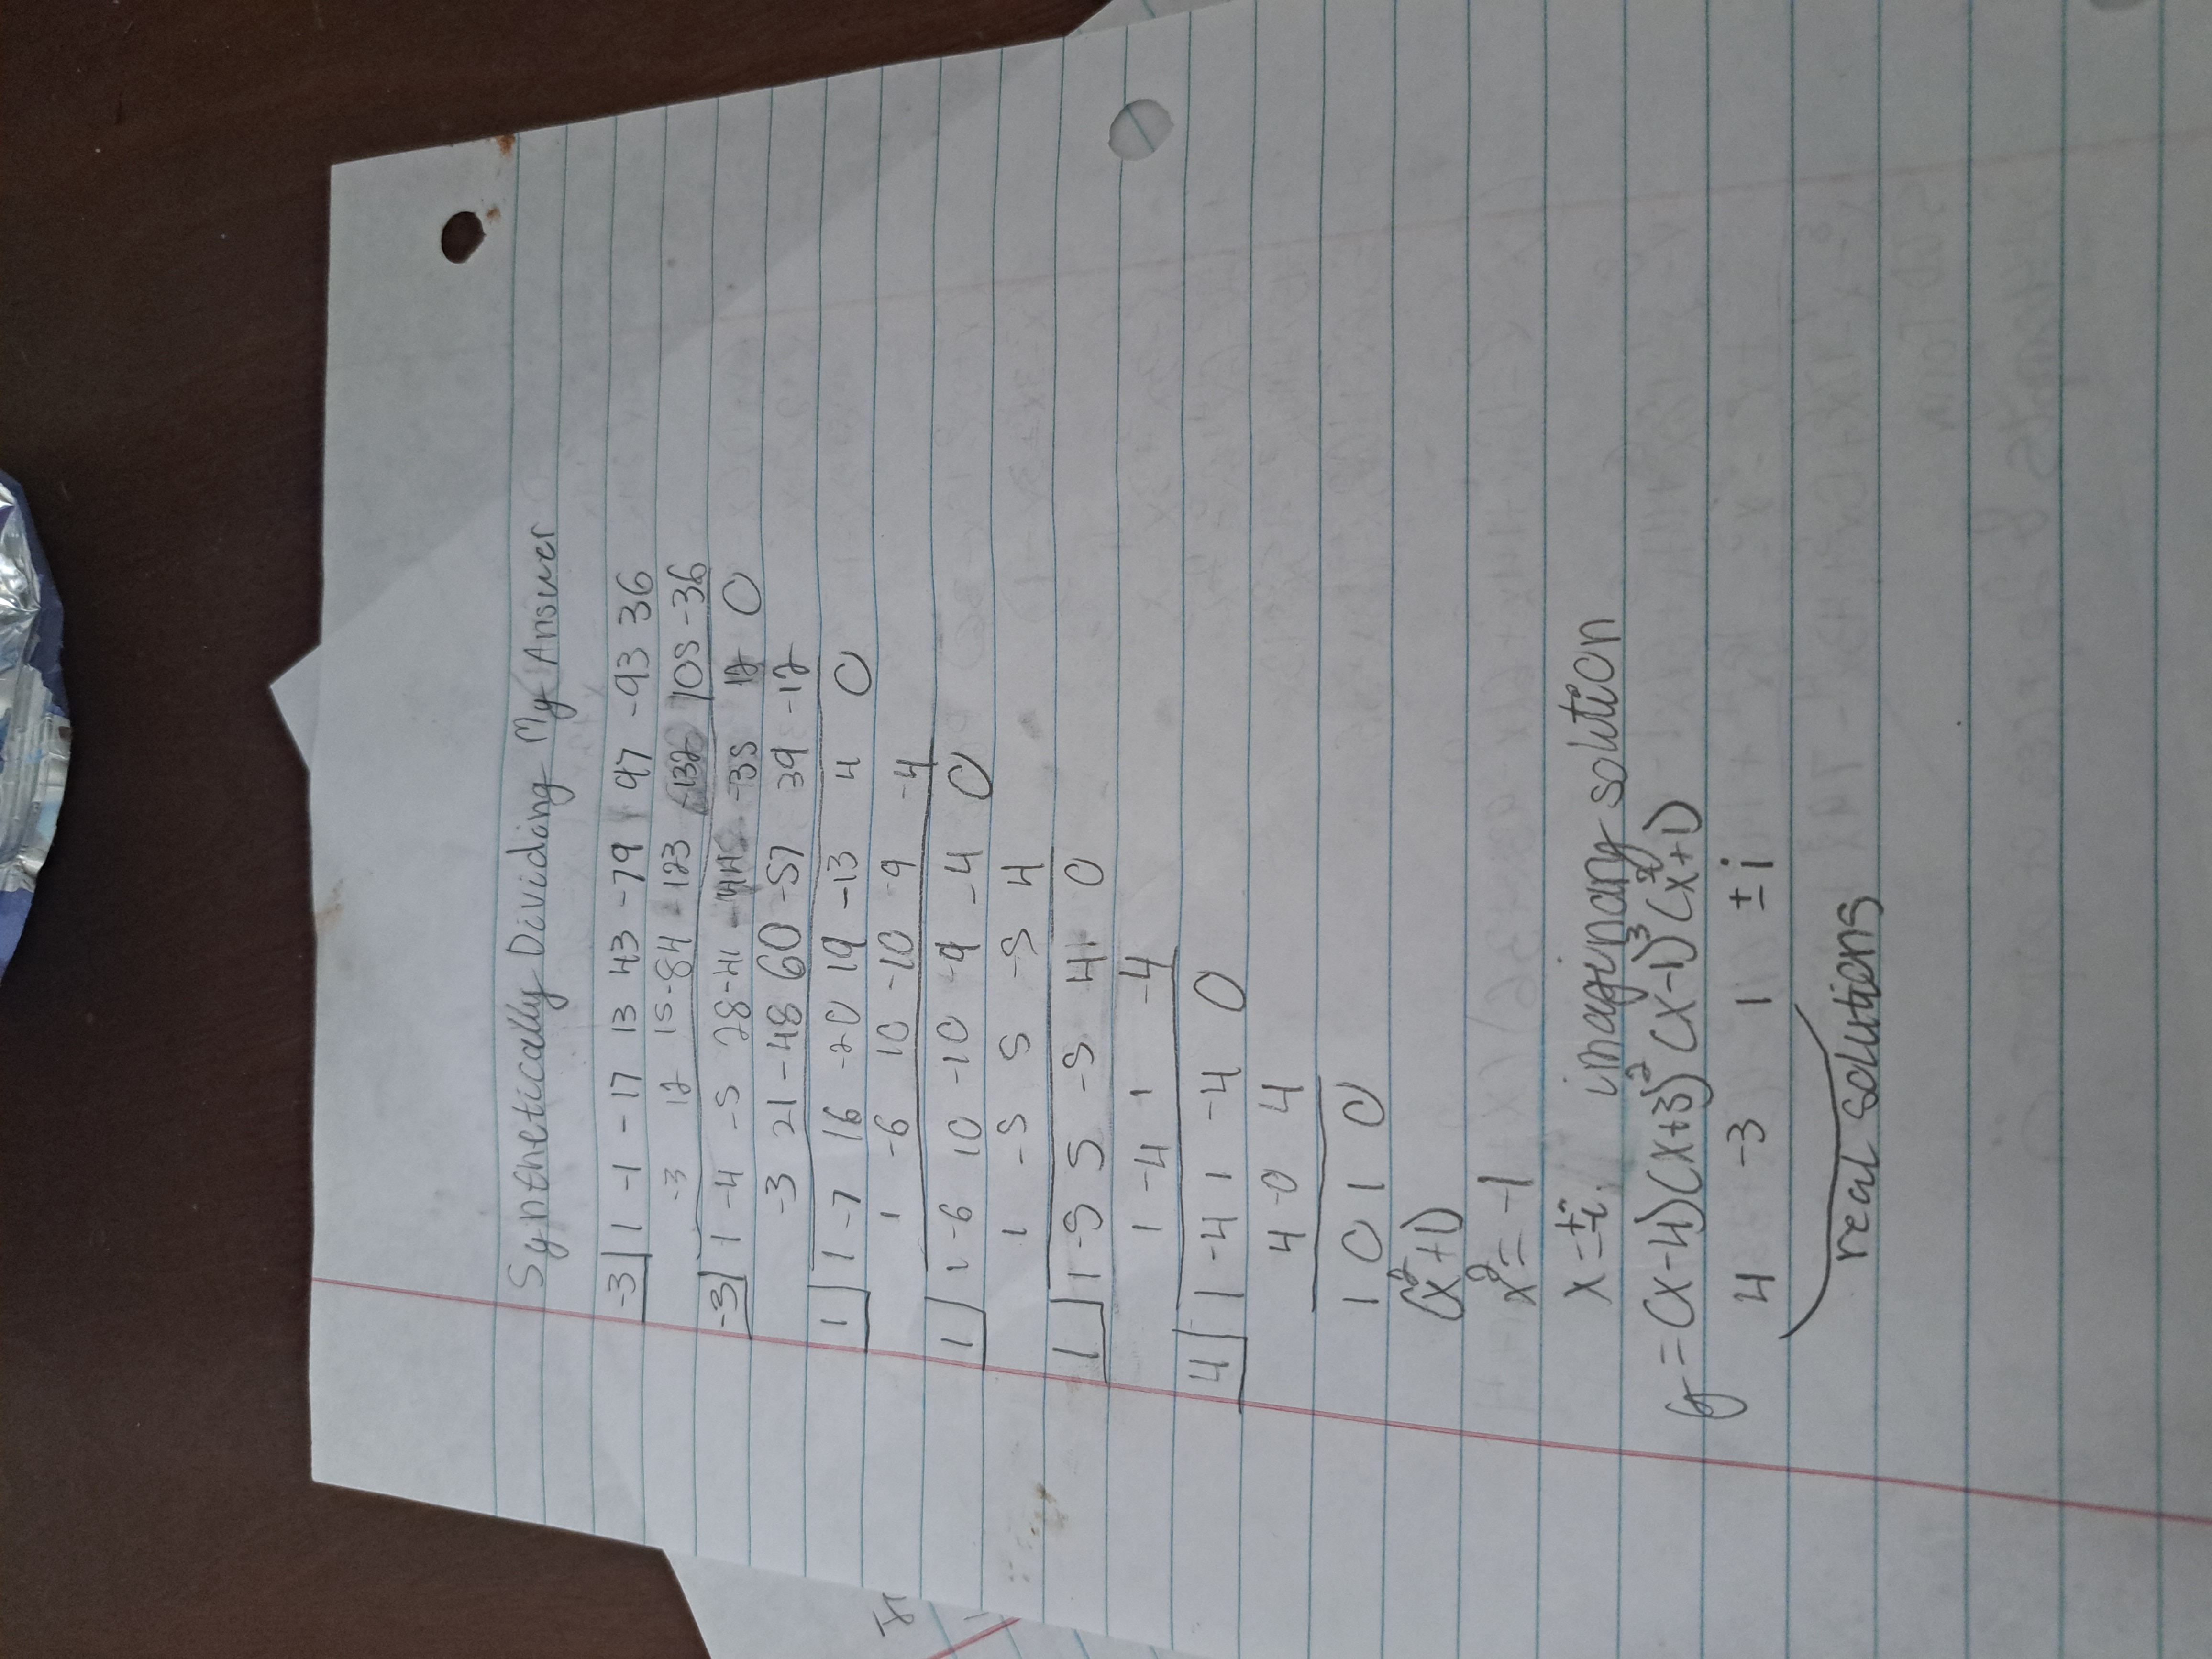 Synthetically Dividing My Answer
-3| 1 -1 -17 13 43 -79 97 -93 36
-3 12 15 -84 123 -132 105 -36
-3| 1 -4 -5 28 -41 44 -35 12 0
-3 21 -48 60 -57 39 -12
1| 1 -7 16 -20 19 -13 4 0
1 -6 10 -10 -9 -4
1| 1 -6 10 -10 -9 -4 0
1 -5 5 -5 4
1| 1 -5 5 -5 4 0
1 -4 1 -4
4| 1 -4 1 -4 0
4 -0 4
1 0 1 0
(x²+1)
x² = -1
x = ±i. imaginary solution
y = (x-4)(x+3)² (x-1)³ (x²+1)
4 -3 1 ±i
real solutions